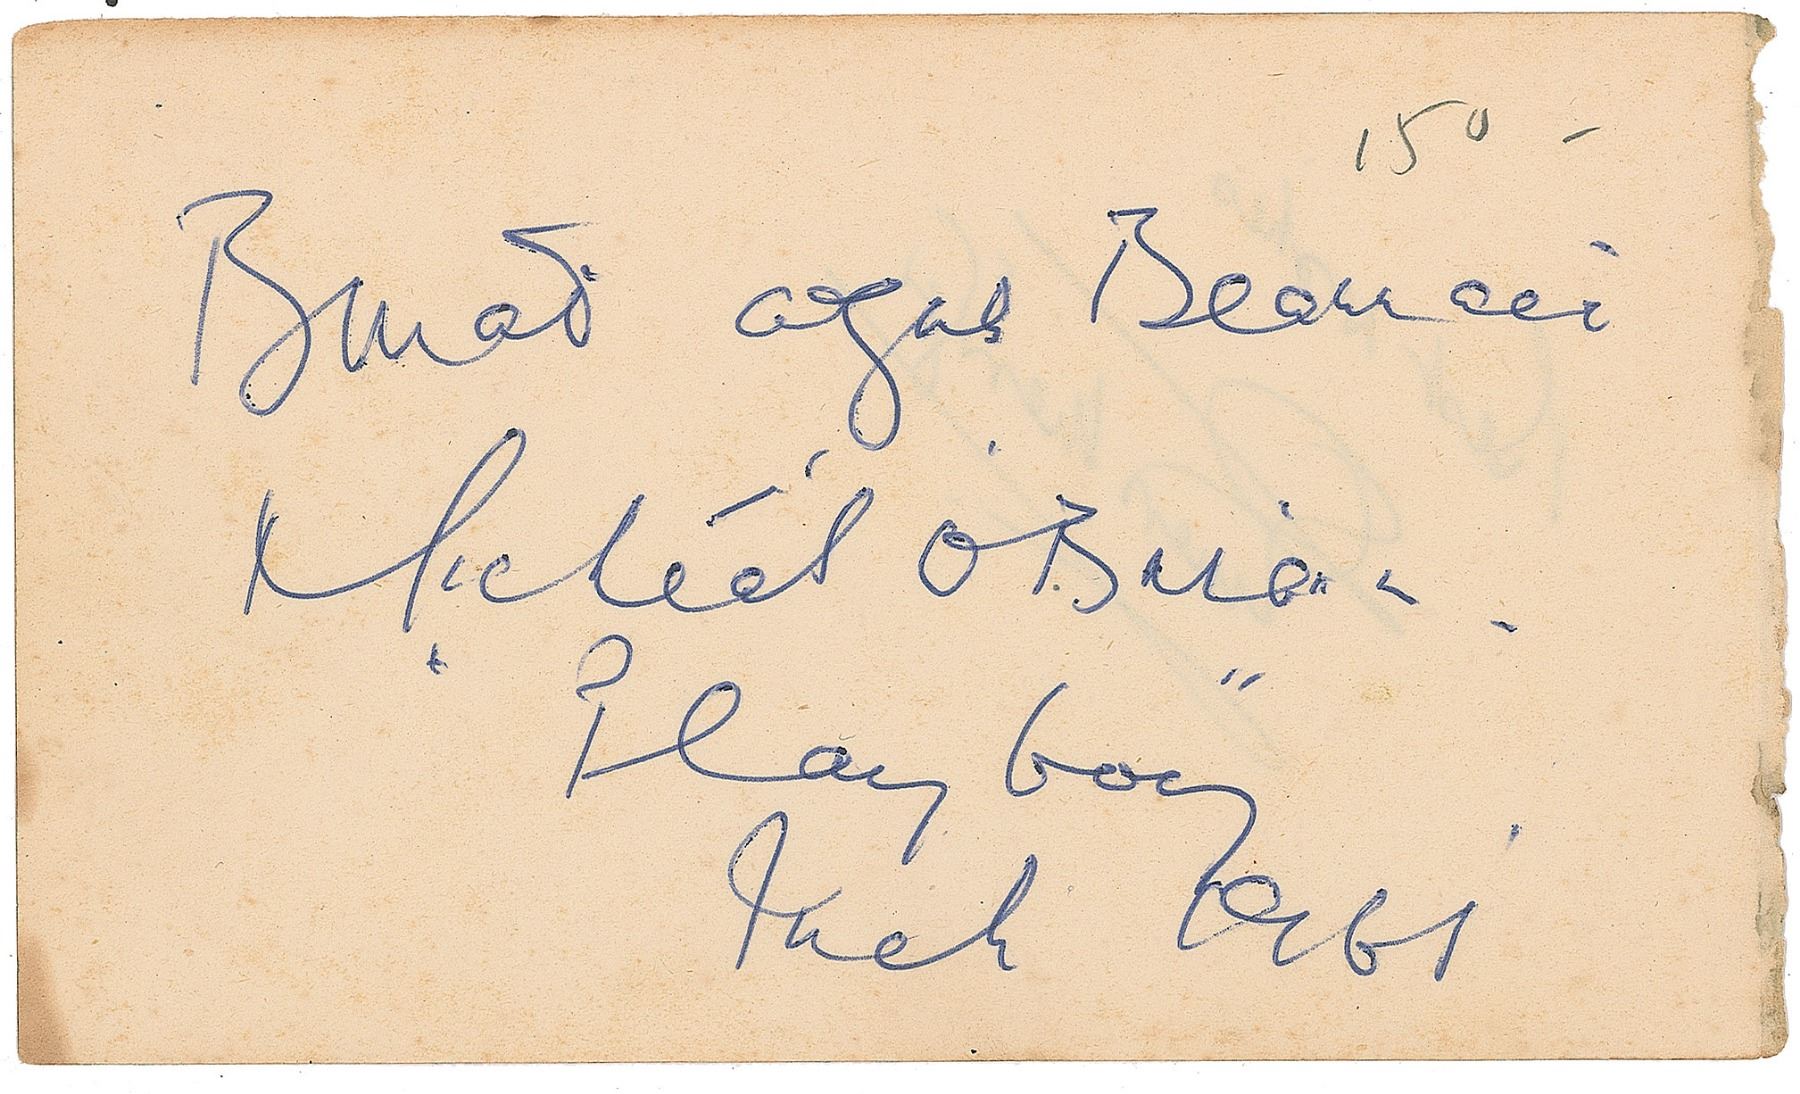 150 -
Buad agus Beannact
Micheál Ó Briain
"Playboy"
Inch 1961